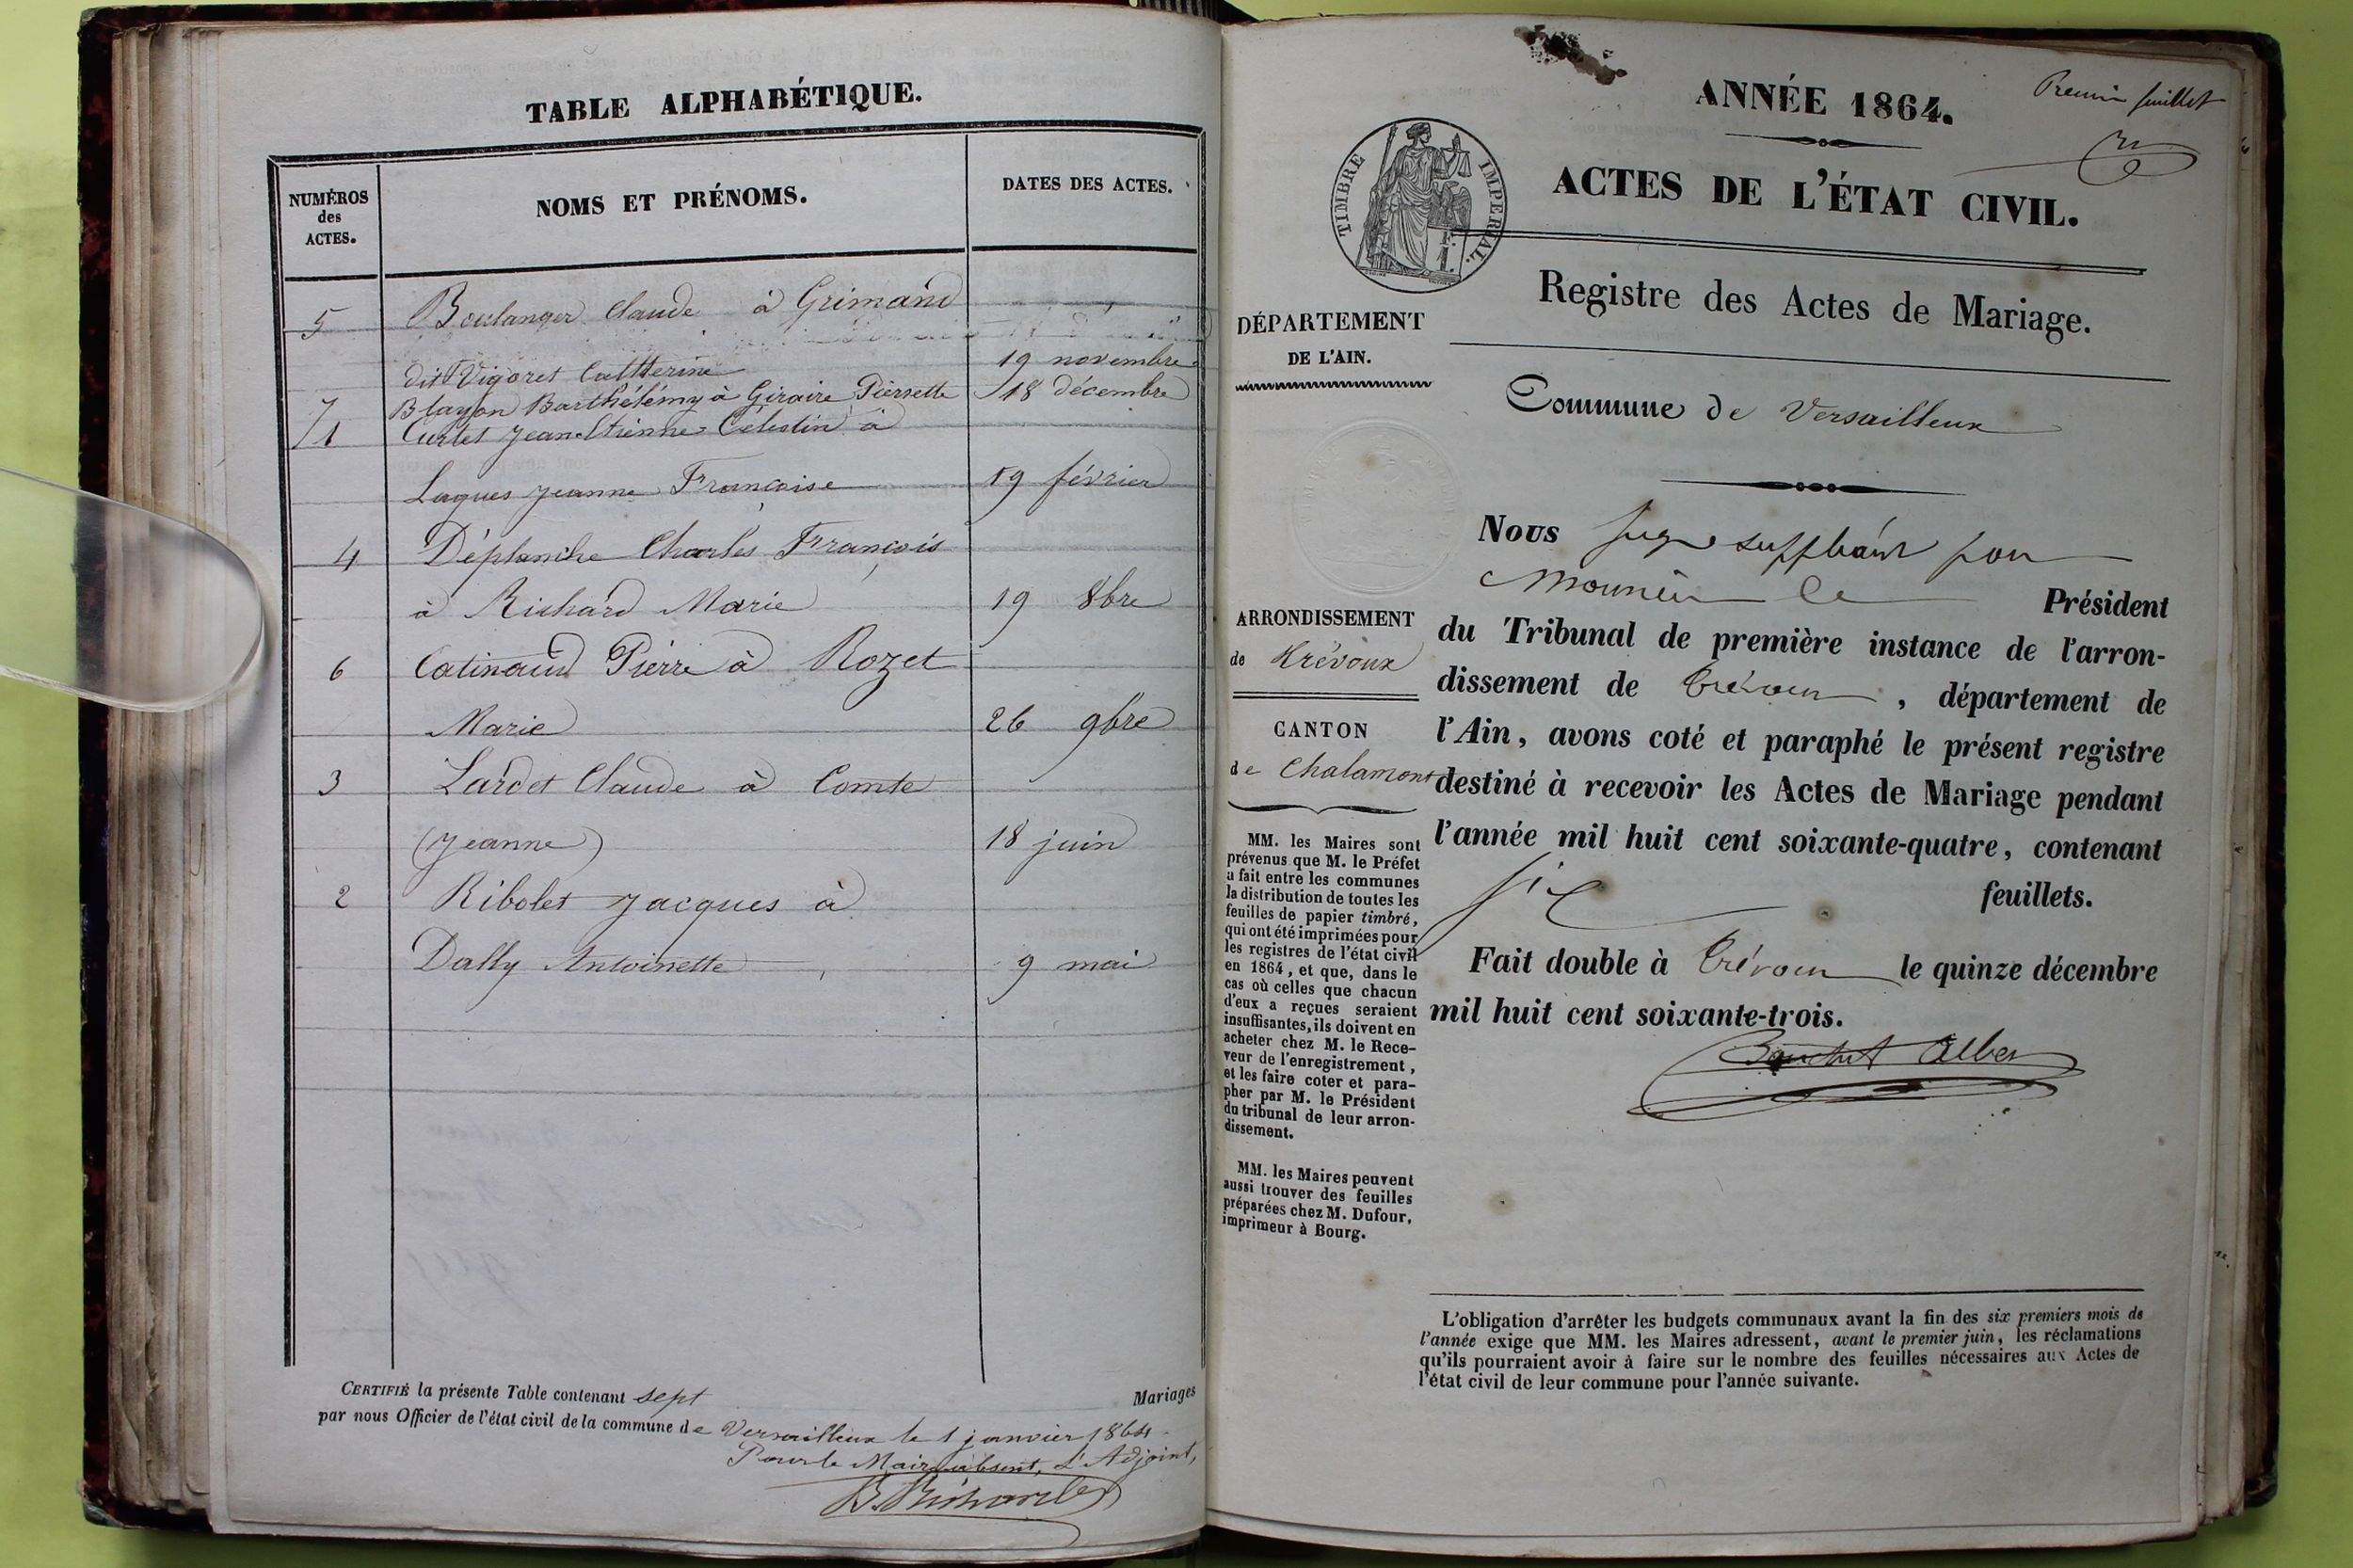 TABLE ALPHABÉTIQUE.
NUMÉROS
des
ACTES.
NOMS ET PRÉNOMS.
DATES DES ACTES.
5 Boulanger Claude à Grimand
dit Vigoret Catherine 19 novembre
7 Blayon Barthélémy à Giraire Pierrette 18 décembre
1 Curtet Jean Etienne Célestin à
Lagues Jeanne Francoise 19 février
4 Déplanche Charles François
à Richard Marie 19 8bre
6 Catinaud Pierre à Rozet
Marie 26 9bre
3 Lardet Claude à Comte
(Jeanne) 18 juin
2 Ribolet Jacques à
Dally Antoinette 9 mai
CERTIFIÉ la présente Table contenant sept Mariages
par nous Officier de l'état civil de la commune de Versailleux le 1 janvier 1864
Pour le Maire absent, L'Adjoint,
B. Richard
Premier feuillet
ANNÉE 1864.
ACTES DE L'ÉTAT CIVIL.
TIMBRE IMPERIAL.
Registre des Actes de Mariage.
DÉPARTEMENT
DE L'AIN.
Commune de Versailleux
ARRONDISSEMENT
de Trévoux
CANTON
de Chalamont
MM. les Maires sont
prévenus que M. le Préfet
a fait entre les communes
la distribution de toutes les
feuilles de papier timbré,
qui ont été imprimées pour
les registres de l'état civil
en 1864, et que, dans le
cas où celles que chacun
d'eux a reçues seraient
insuffisantes, ils doivent en
acheter chez M. le Rece-
veur de l'enregistrement,
et les faire coter et para-
pher par M. le Président
du tribunal de leur arron-
dissement.
MM. les Maires peuvent
aussi trouver des feuilles
préparées chez M. Dufour,
imprimeur à Bourg.
Nous Juge suppléant pour
le Président
du Tribunal de première instance de l'arron-
dissement de Trévoux, département de
l'Ain, avons coté et paraphé le présent registre
destiné à recevoir les Actes de Mariage pendant
l'année mil huit cent soixante-quatre, contenant
six feuillets.
Fait double à Trévoux le quinze décembre
mil huit cent soixante-trois.
L'obligation d'arrêter les budgets communaux avant la fin des six premiers mois de
l'année exige que MM. les Maires adressent, avant le premier juin, les réclamations
qu'ils pourraient avoir à faire sur le nombre des feuilles nécessaires aux Actes de
l'état civil de leur commune pour l'année suivante.